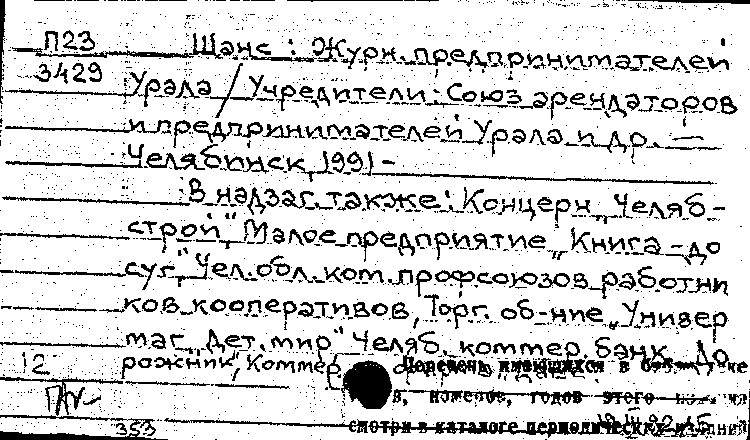 П23 Шанс : Журн. предпринимателей
3429 Урала / Учредители: Союз арендаторов
и предпринимателей Урала и др. —
Челябинск, 1991 -
В надзаг. также: Концерн „Челяб-
строй", Малое предприятие „Книга-до
суг", Чел. обл. ком. профсоюзов работни
ков кооперативов, Торг. об-ние „Универ
маг „Дет. мир" Челяб. коммер. банк „До
12 рожник", Коммер.
Перечень имеющихся в
номеров, годов этого
353 смотри в каталоге периодических изданий